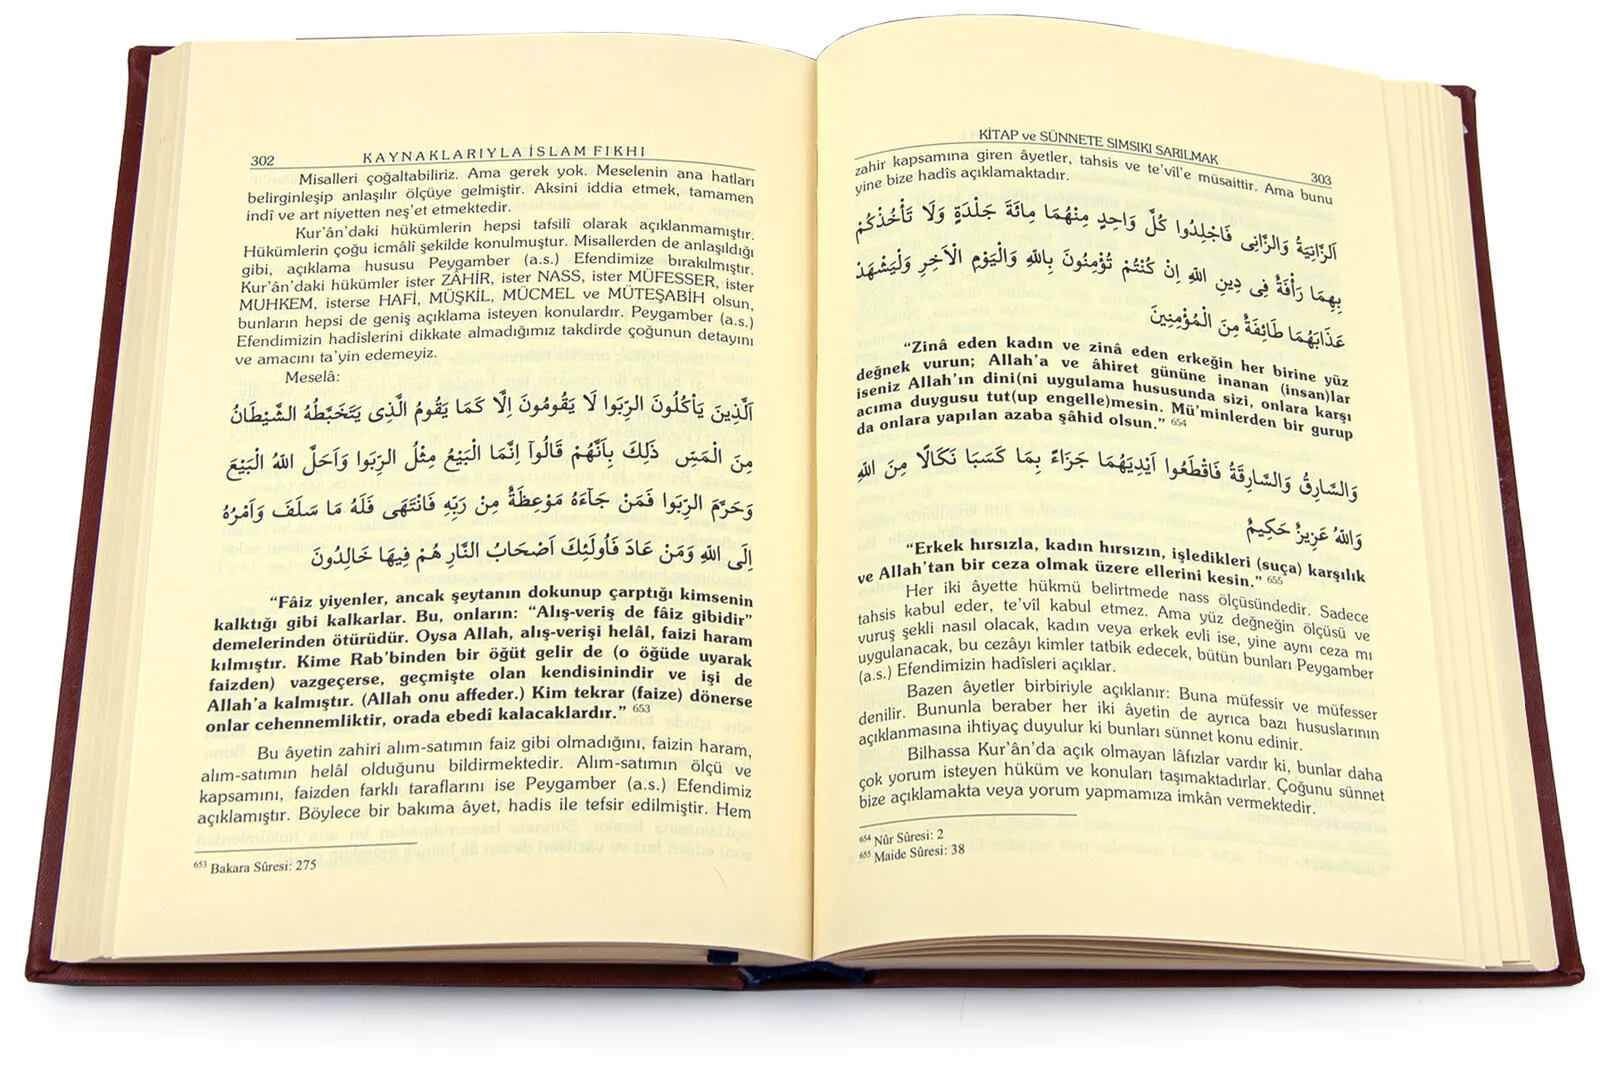 302
KAYNAKLARIYLA İSLAM FIKHI
Misalleri çoğaltabiliriz. Ama gerek yok. Meselenin ana hatları
belirginleşip anlaşılır ölçüye gelmiştir. Aksini iddia etmek, tamamen
indî ve art niyetten neş'et etmektedir.
Kur'ân'daki hükümlerin hepsi tafsilî olarak açıklanmamıştır.
Hükümlerin çoğu icmâlî şekilde konulmuştur. Misallerden de anlaşıldığı
gibi, açıklama hususu Peygamber (a.s.) Efendimize bırakılmıştır.
Kur'ân'daki hükümler ister ZÂHİR, ister NASS, ister MÜFESSER, ister
MUHKEM, isterse HAFİ, MÜŞKİL, MÜCMEL ve MÜTEŞABİH olsun,
bunların hepsi de geniş açıklama isteyen konulardır. Peygamber (a.s.)
Efendimizin hadîslerini dikkate almadığımız takdirde çoğunun detayını
ve amacını ta'yin edemeyiz.
Meselâ:
اَلَّذِينَ يَأْكُلُونَ الرِّبَوا لَا يَقُومُونَ اِلَّا كَمَا يَقُومُ الَّذِى يَتَخَبَّطُهُ الشَّيْطَانُ
مِنَ الْمَسِّ ذَلِكَ بِاَنَّهُمْ قَالُوآ اِنَّمَا الْبَيْعُ مِثْلُ الرِّبَوا وَاَحَلَّ اللهُ الْبَيْعَ
وَحَرَّمَ الرِّبَوا فَمَنْ جَآءَهُ مَوْعِظَةٌ مِنْ رَبِّهِ فَانْتَهَى فَلَهُ مَا سَلَفَ وَاَمْرُهُ
اِلَى اللهِ وَمَنْ عَادَ فَاُولَئِكَ اَصْحَابُ النَّارِ هُمْ فِيهَا خَالِدُونَ
“Fâiz yiyenler, ancak şeytanın dokunup çarptığı kimsenin
kalktığı gibi kalkarlar. Bu, onların: “Alış-veriş de fâiz gibidir”
demelerinden ötürüdür. Oysa Allah, alış-verişi helâl, faizi haram
kılmıştır. Kime Rab'binden bir öğüt gelir de (o öğüde uyarak
faizden) vazgeçerse, geçmişte olan kendisinindir ve işi de
Allah'a kalmıştır. (Allah onu affeder.) Kim tekrar (faize) dönerse
onlar cehennemliktir, orada ebedî kalacaklardır.” 653
Bu âyetin zahiri alım-satımın faiz gibi olmadığını, faizin haram,
alım-satımın helâl olduğunu bildirmektedir. Alım-satımın ölçü ve
kapsamını, faizden farklı taraflarını ise Peygamber (a.s.) Efendimiz
açıklamıştır. Böylece bir bakıma âyet, hadis ile tefsir edilmiştir. Hem
653 Bakara Sûresi: 275
KİTAP ve SÜNNETE SIMSIKI SARILMAK
303
zahir kapsamına giren âyetler, tahsis ve te'vîl'e müsaittir. Ama bunu
yine bize hadîs açıklamaktadır.
اَلزَّانِيَةُ وَالزَّانِى فَاجْلِدُوا كُلَّ وَاحِدٍ مِنْهُمَا مِائَةَ جَلْدَةٍ وَلَا تَأْخُذْكُمْ
بِهِمَا رَأْفَةٌ فِى دِينِ اللهِ اِنْ كُنْتُمْ تُؤْمِنُونَ بِاللهِ وَالْيَوْمِ الْاَخِرِ وَلْيَشْهَدْ
عَذَابَهُمَا طَائِفَةٌ مِنَ الْمُؤْمِنِينَ
“Zinâ eden kadın ve zinâ eden erkeğin her birine yüz
değnek vurun; Allah'a ve âhiret gününe inanan (insan)lar
iseniz Allah'ın dini(ni uygulama hususunda sizi, onlara karşı
acıma duygusu tut(up engelle)mesin. Mü'minlerden bir gurup
da onlara yapılan azaba şâhid olsun.” 654
وَالسَّارِقُ وَالسَّارِقَةُ فَاقْطَعُوا اَيْدِيَهُمَا جَزَاءً بِمَا كَسَبَا نَكَالًا مِنَ اللهِ
وَاللهُ عَزِيزٌ حَكِيمٌ
“Erkek hırsızla, kadın hırsızın, işledikleri (suça) karşılık
ve Allah'tan bir ceza olmak üzere ellerini kesin.” 655
Her iki âyette hükmü belirtmede nass ölçüsündedir. Sadece
tahsis kabul eder, te'vîl kabul etmez. Ama yüz değneğin ölçüsü ve
vuruş şekli nasıl olacak, kadın veya erkek evli ise, yine aynı ceza mı
uygulanacak, bu cezâyı kimler tatbik edecek, bütün bunları Peygamber
(a.s.) Efendimizin hadîsleri açıklar.
Bazen âyetler birbiriyle açıklanır: Buna müfessir ve müfesser
denilir. Bununla beraber her iki âyetin de ayrıca bazı hususlarının
açıklanmasına ihtiyaç duyulur ki bunları sünnet konu edinir.
Bilhassa Kur'ân'da açık olmayan lâfızlar vardır ki, bunlar daha
çok yorum isteyen hüküm ve konuları taşımaktadırlar. Çoğunu sünnet
bize açıklamakta veya yorum yapmamıza imkân vermektedir.
654 Nûr Sûresi: 2
655 Maide Sûresi: 38